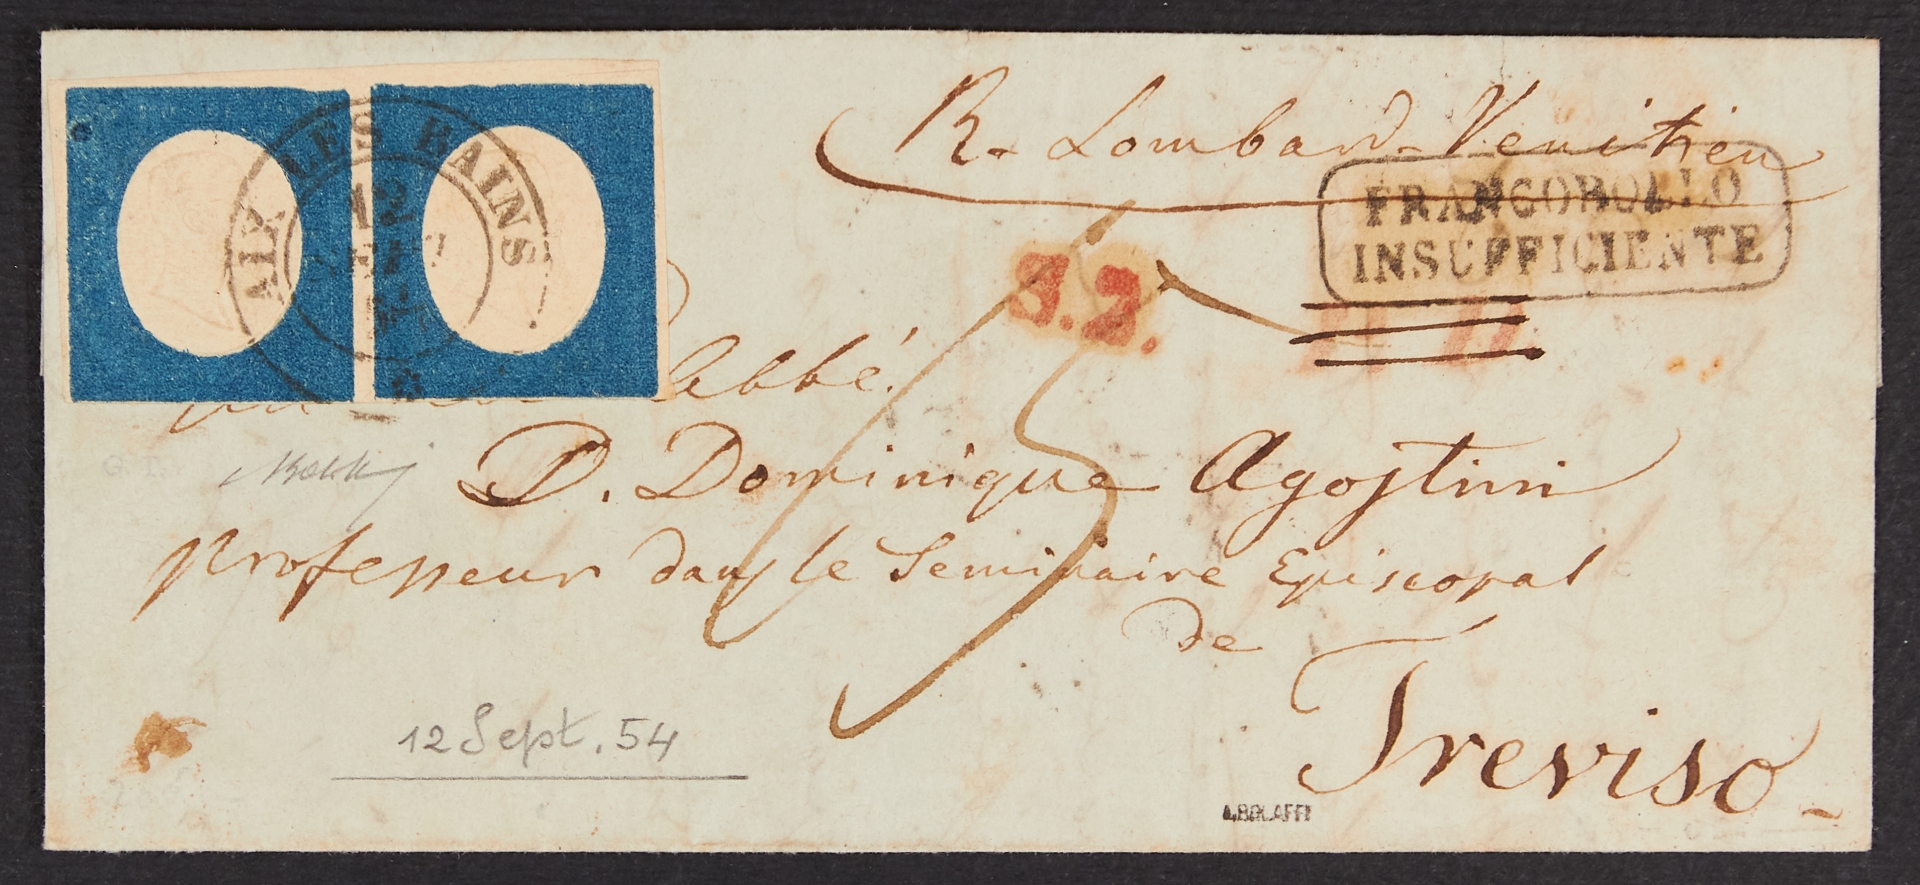 R. Lombard-Venitien
AIX LES BAINS
12
SEPT
FRANCOBOLLO
INSUFFICIENTE
S.2.
abbé
D. Dominique Agostini
professeur dans le Seminaire Episcopal
de
Treviso
12 Sept. 54
A.BOLAFFI